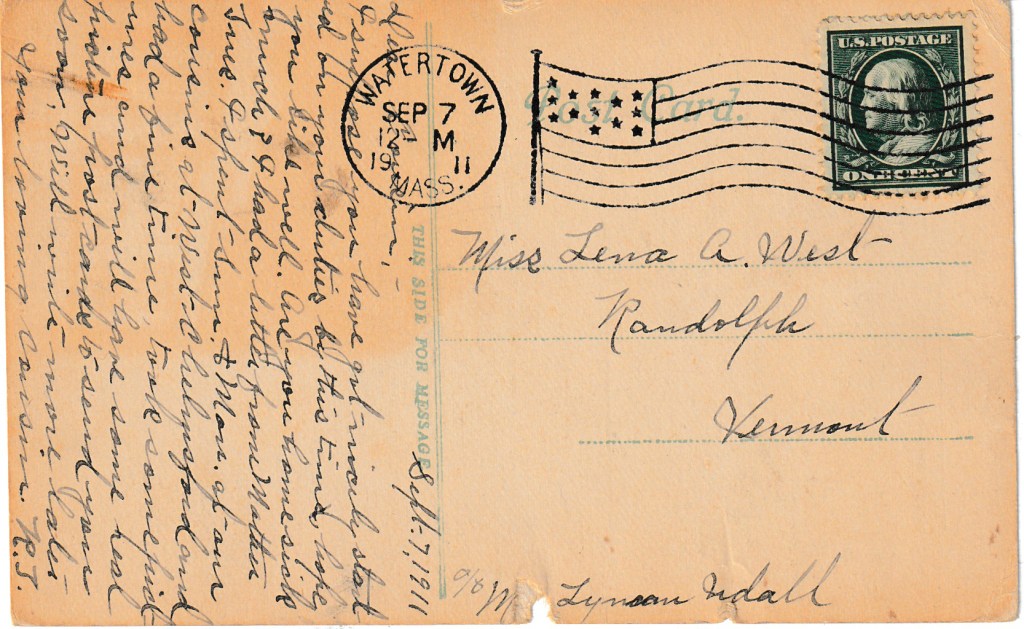 Post Card.
THIS SIDE FOR MESSAGE
WATERTOWN
SEP 7
12 M
19 11
MASS.
U.S. POSTAGE
ONE CENT
Sept. 7, 1911
Dear Cousin,-
I suppose you have got nicely start
ed on your duties by this time, hope
you like well. Are you homesick
much? I had a letter from Mattie
Tues. I spent Sun. & Mon. at our
cousins at West Chelmsford and
had a fine time, took some pict
ures and will have some real
picture post cards to send you
soon. Will write more later
Your loving cousin. R.J.
Miss Lena A. West
Randolph
Vermont
c/o Lyman Udall